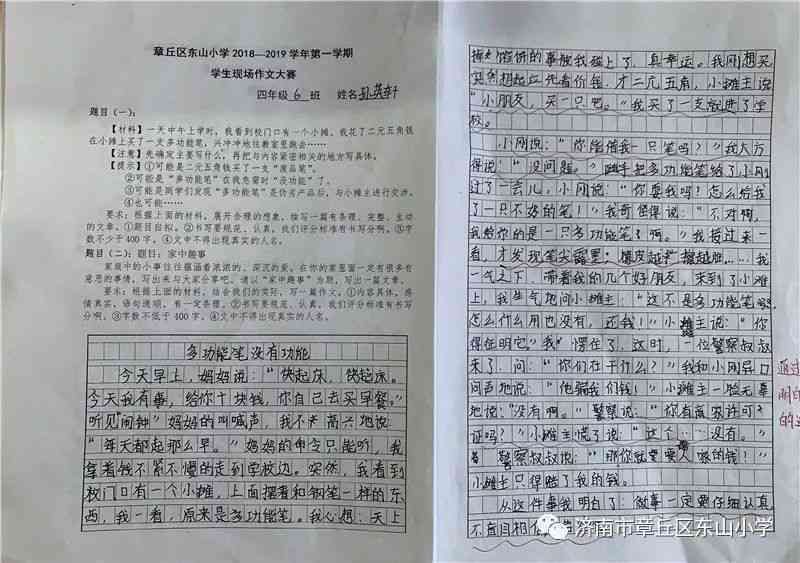 章丘区东山小学2018—2019学年第一学期
学生现场作文大赛
四年级 6 班 姓名
题目（一）：
【材料】一天中午上学时，我看到校门口有一个小摊，我花了二元五角钱
在小摊上买了一支多功能笔，兴冲冲地往教室里跑去……
【注意】先确定主要写什么，再把与内容紧密相关的地方写具体。
【提示】①可能是二元五角钱买了一支“废品笔”。
②可能是“多功能笔”在我急需时“没功能”了。
③可能是同学们发现“多功能笔”是伪劣产品后，与小摊主进行交涉。
④也可能……
要求：根据上面的材料，展开合理的想象，编写一篇有条理、完整、生动
的文章。①题目自拟。②书写要规范、认真，我们评分标准有书写分啊。③字
数不少于400字。④文中不得出现真实的人名。
题目（二）：题目：家中趣事
家庭中的小事往往蕴涵着浓浓的、深沉的爱，在你的家里面一定有很多有
意思的事情，写出来与大家分享吧。请以“家中趣事”为题，写出一篇文章。
要求：根据上面的材料，结合我们的实际，写一篇作文。①内容具体，感
情真实，语句通顺，有一定条理。②书写要规范、认真，我们评分标准有书写
分啊。③字数不低于400字。④文中不得出现真实的人名。
多功能笔没有功能
今天早上，妈妈说：“快起床，快起床。
今天我有事，给你十块钱，你自己去买早餐。”
听见“闹钟”妈妈的叫喊声，我不高兴地说：
“每天都起那么早。”妈妈的命令只能听，我
拿着钱不紧不慢的走到学校边。突然，我看到
校门口有一个小摊，上面摆着和钢笔一样的东
西，我一看，原来是多功能笔。我心想：天上
掉馅饼的事被我碰上了，真幸运。我刚想买
想起应先看价钱，才二元五角，小摊主说
“小朋友，买一只吧。”我买了一支就进了学
校。
小刚说：“你能借我一只笔吗？”我大方
得说：“没问题。”随手把多功能笔给了小刚
过了一会儿，小刚说：“你耍我吗！怎么给我
了一只不好的笔！”我奇怪得说：“不对啊，
我给你的是一只多功能笔了啊。”我接过来一
看，才发现笔尖露墨，橡皮越擦越脏…，我
一气之下，带着我的几个好朋友，来到了小摊
上，我生气地问小摊主：“这不是多功能笔吗
怎么什么用也没有，还钱！”小摊主说：“你
得证明它。”我愣住了，这时，一位警察叔叔
来了，问：“你们在干什么？”我和小刚异口
同声地说：“他骗我们钱！”小摊主一脸无辜
地说：“没有啊。”警察说：“你有营业许可
证吗？”小摊主慌了说：“这个……没有。”
警察叔叔说：“那你就要还人家的钱！”
小摊主只得赔了我的钱。
从这件事我明白了：做事一定要仔细认真，
不盲目相信
通过
明白
的道
济南市章丘区东山小学